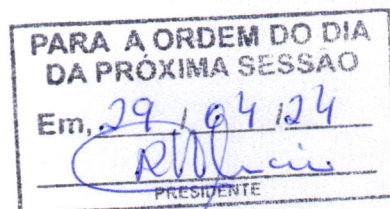 PARA A ORDEM DO DIA
DA PRÓXIMA SESSÃO
Em, 29 / 04 / 24
PRESIDENTE